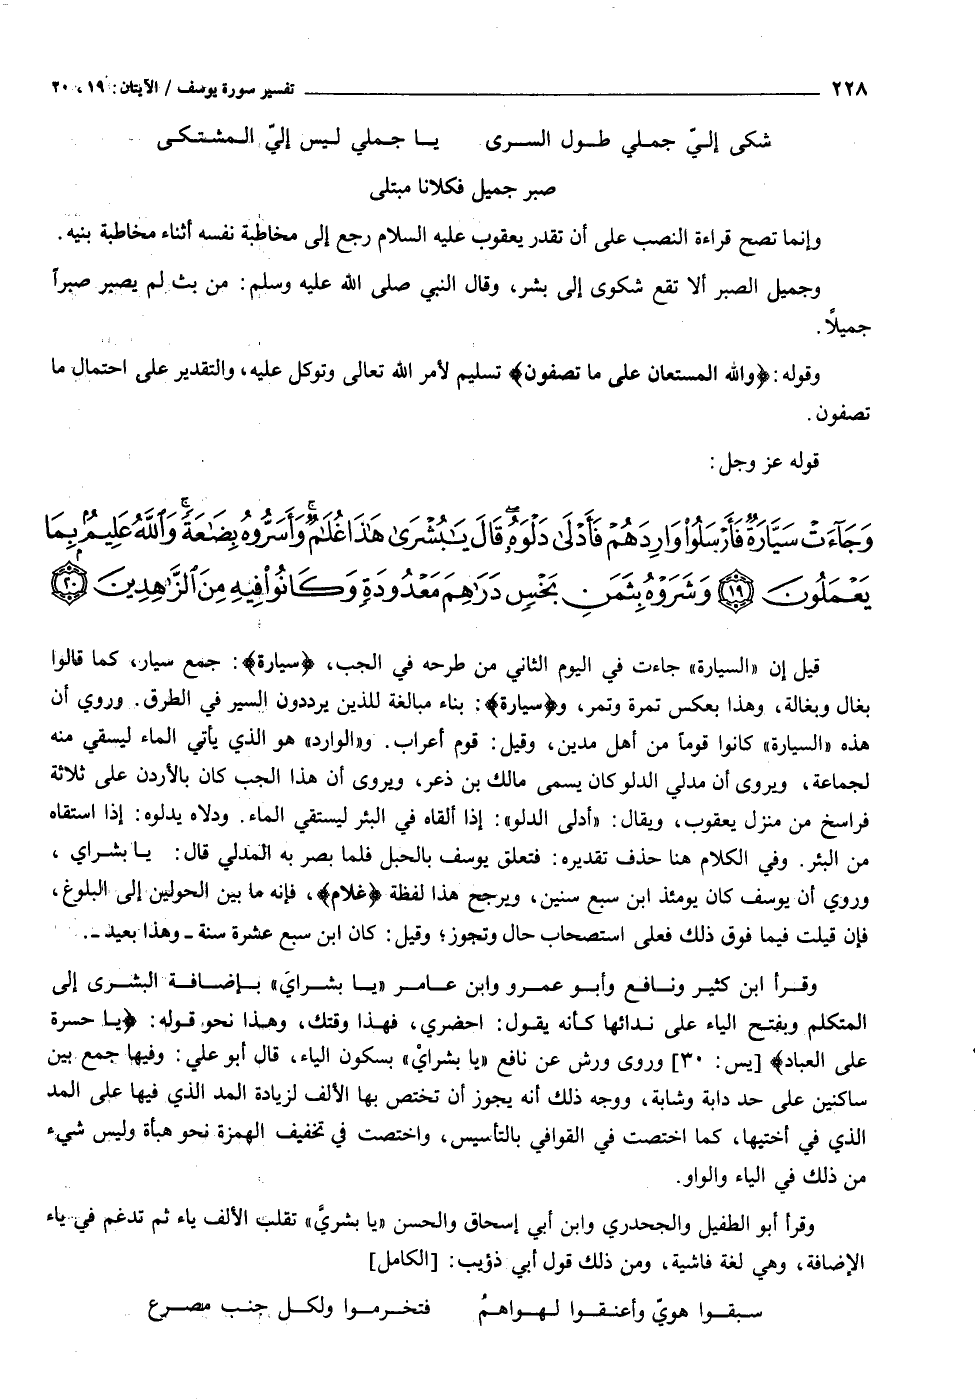 ٢٢٨ تفسير سورة يوسف / الآيتان: ١٩، ٢٠
شكى إليّ جملي طول السرى يا جملي ليس إليّ المشتكى
صبر جميل فكلانا مبتلى
وإنما تصح قراءة النصب على أن تقدر يعقوب عليه السلام رجع إلى مخاطبة نفسه أثناء مخاطبة بنيه.
وجميل الصبر ألا تقع شكوى إلى بشر، وقال النبي صلى الله عليه وسلم: من بث لم يصبر صبراً
جميلاً.
وقوله: ﴿والله المستعان على ما تصفون﴾ تسليم لأمر الله تعالى وتوكل عليه، والتقدير على احتمال ما
تصفون.
قوله عز وجل:
وَجَآءَتْ سَيَّارَةٌ فَأَرْسَلُوا۟ وَارِدَهُمْ فَأَدْلَىٰ دَلْوَهُۥ قَالَ يَـٰبُشْرَىٰ هَـٰذَا غُلَـٰمٌ وَأَسَرُّوهُ بِضَـٰعَةً وَٱللَّهُ عَلِيمٌۢ بِمَا
يَعْمَلُونَ ١٩ وَشَرَوْهُ بِثَمَنٍۭ بَخْسٍ دَرَٰهِمَ مَعْدُودَةٍ وَكَانُوا۟ فِيهِ مِنَ ٱلزَّٰهِدِينَ ٢٠
قيل إن «السيارة» جاءت في اليوم الثاني من طرحه في الجب، ﴿سيارة﴾: جمع سيار، كما قالوا
بغال وبغالة، وهذا بعكس تمرة وتمر، و﴿سيارة﴾: بناء مبالغة للذين يرددون السير في الطرق. وروي أن
هذه «السيارة» كانوا قوماً من أهل مدين، وقيل: قوم أعراب. و«الوارد» هو الذي يأتي الماء ليسقي منه
لجماعة، ويروى أن مدلي الدلو كان يسمى مالك بن ذعر، ويروى أن هذا الجب كان بالأردن على ثلاثة
فراسخ من منزل يعقوب، ويقال: «أدلى الدلو»: إذا ألقاه في البئر ليستقي الماء. ودلاه يدلوه: إذا استقاه
من البئر. وفي الكلام هنا حذف تقديره: فتعلق يوسف بالحبل فلما بصر به المدلي قال: يا بشراي،
وروي أن يوسف كان يومئذ ابن سبع سنين، ويرجح هذا لفظة ﴿غلام﴾، فإنه ما بين الحولين إلى البلوغ،
فإن قيلت فيما فوق ذلك فعلى استصحاب حال وتجوز؛ وقيل: كان ابن سبع عشرة سنة - وهذا بعيد -.
وقرأ ابن كثير ونافع وأبو عمرو وابن عامر «يا بشرايَ» بإضافة البشرى إلى
المتكلم وبفتح الياء على ندائها كأنه يقول: احضري، فهذا وقتك، وهذا نحو قوله: ﴿يا حسرة
على العباد﴾ [يس: ٣٠] وروى ورش عن نافع «يا بشرايْ» بسكون الياء، قال أبو علي: وفيها جمع بين
ساكنين على حد دابة وشابة، ووجه ذلك أنه يجوز أن تختص بها الألف لزيادة المد الذي فيها على المد
الذي في أختيها، كما اختصت في القوافي بالتأسيس، واختصت في تخفيف الهمزة نحو هبأة وليس شيء
من ذلك في الياء والواو.
وقرأ أبو الطفيل والجحدري وابن أبي إسحاق والحسن «يا بشريَّ» تقلب الألف ياء ثم تدغم في ياء
الإضافة، وهي لغة فاشية، ومن ذلك قول أبي ذؤيب: [الكامل]
سبقوا هويّ وأعنقوا لهواهمُ فتخرموا ولكل جنب مصرع